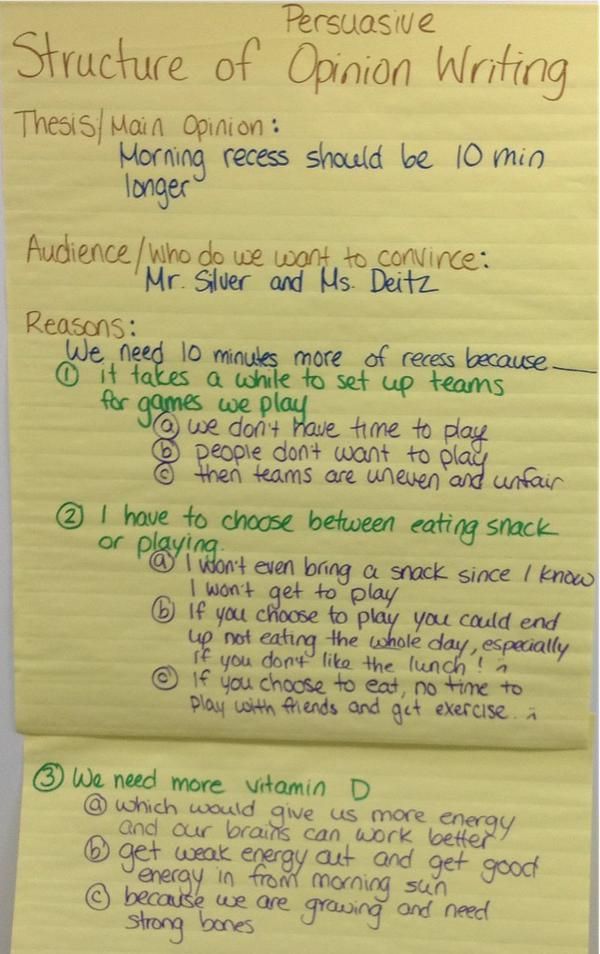 Persuasive
Structure of Opinion Writing
Thesis/Main Opinion:
Morning recess should be 10 min
longer
Audience/Who do we want to convince:
Mr. Silver and Ms. Deitz
Reasons:
We need 10 minutes more of recess because___
① it takes a while to set up teams
for games we play
ⓐ we don't have time to play
ⓑ people don't want to play
ⓒ then teams are uneven and unfair
② I have to choose between eating snack
or playing.
ⓐ I won't even bring a snack since I know
I won't get to play
ⓑ If you choose to play you could end
up not eating the whole day, especially
if you don't like the lunch!
ⓒ If you choose to eat, no time to
play with friends and get exercise.
③ We need more vitamin D
ⓐ which would give us more energy
and our brains can work better
ⓑ get weak energy out and get good
energy in from morning sun
ⓒ because we are growing and need
strong bones